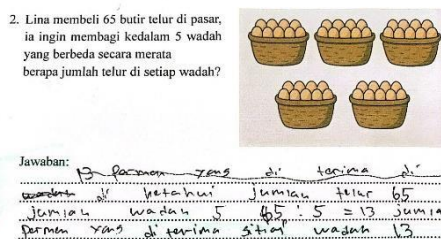 2. Lina membeli 65 butir telur di pasar,
ia ingin membagi kedalam 5 wadah
yang berbeda secara merata
berapa jumlah telur di setiap wadah?
Jawaban:
13 permen yang di terima di
di ketahui jumlah telur 65
jumlah wadah 5 65 : 5 = 13 jumla
Permen yang di terima sitiap wadah 13